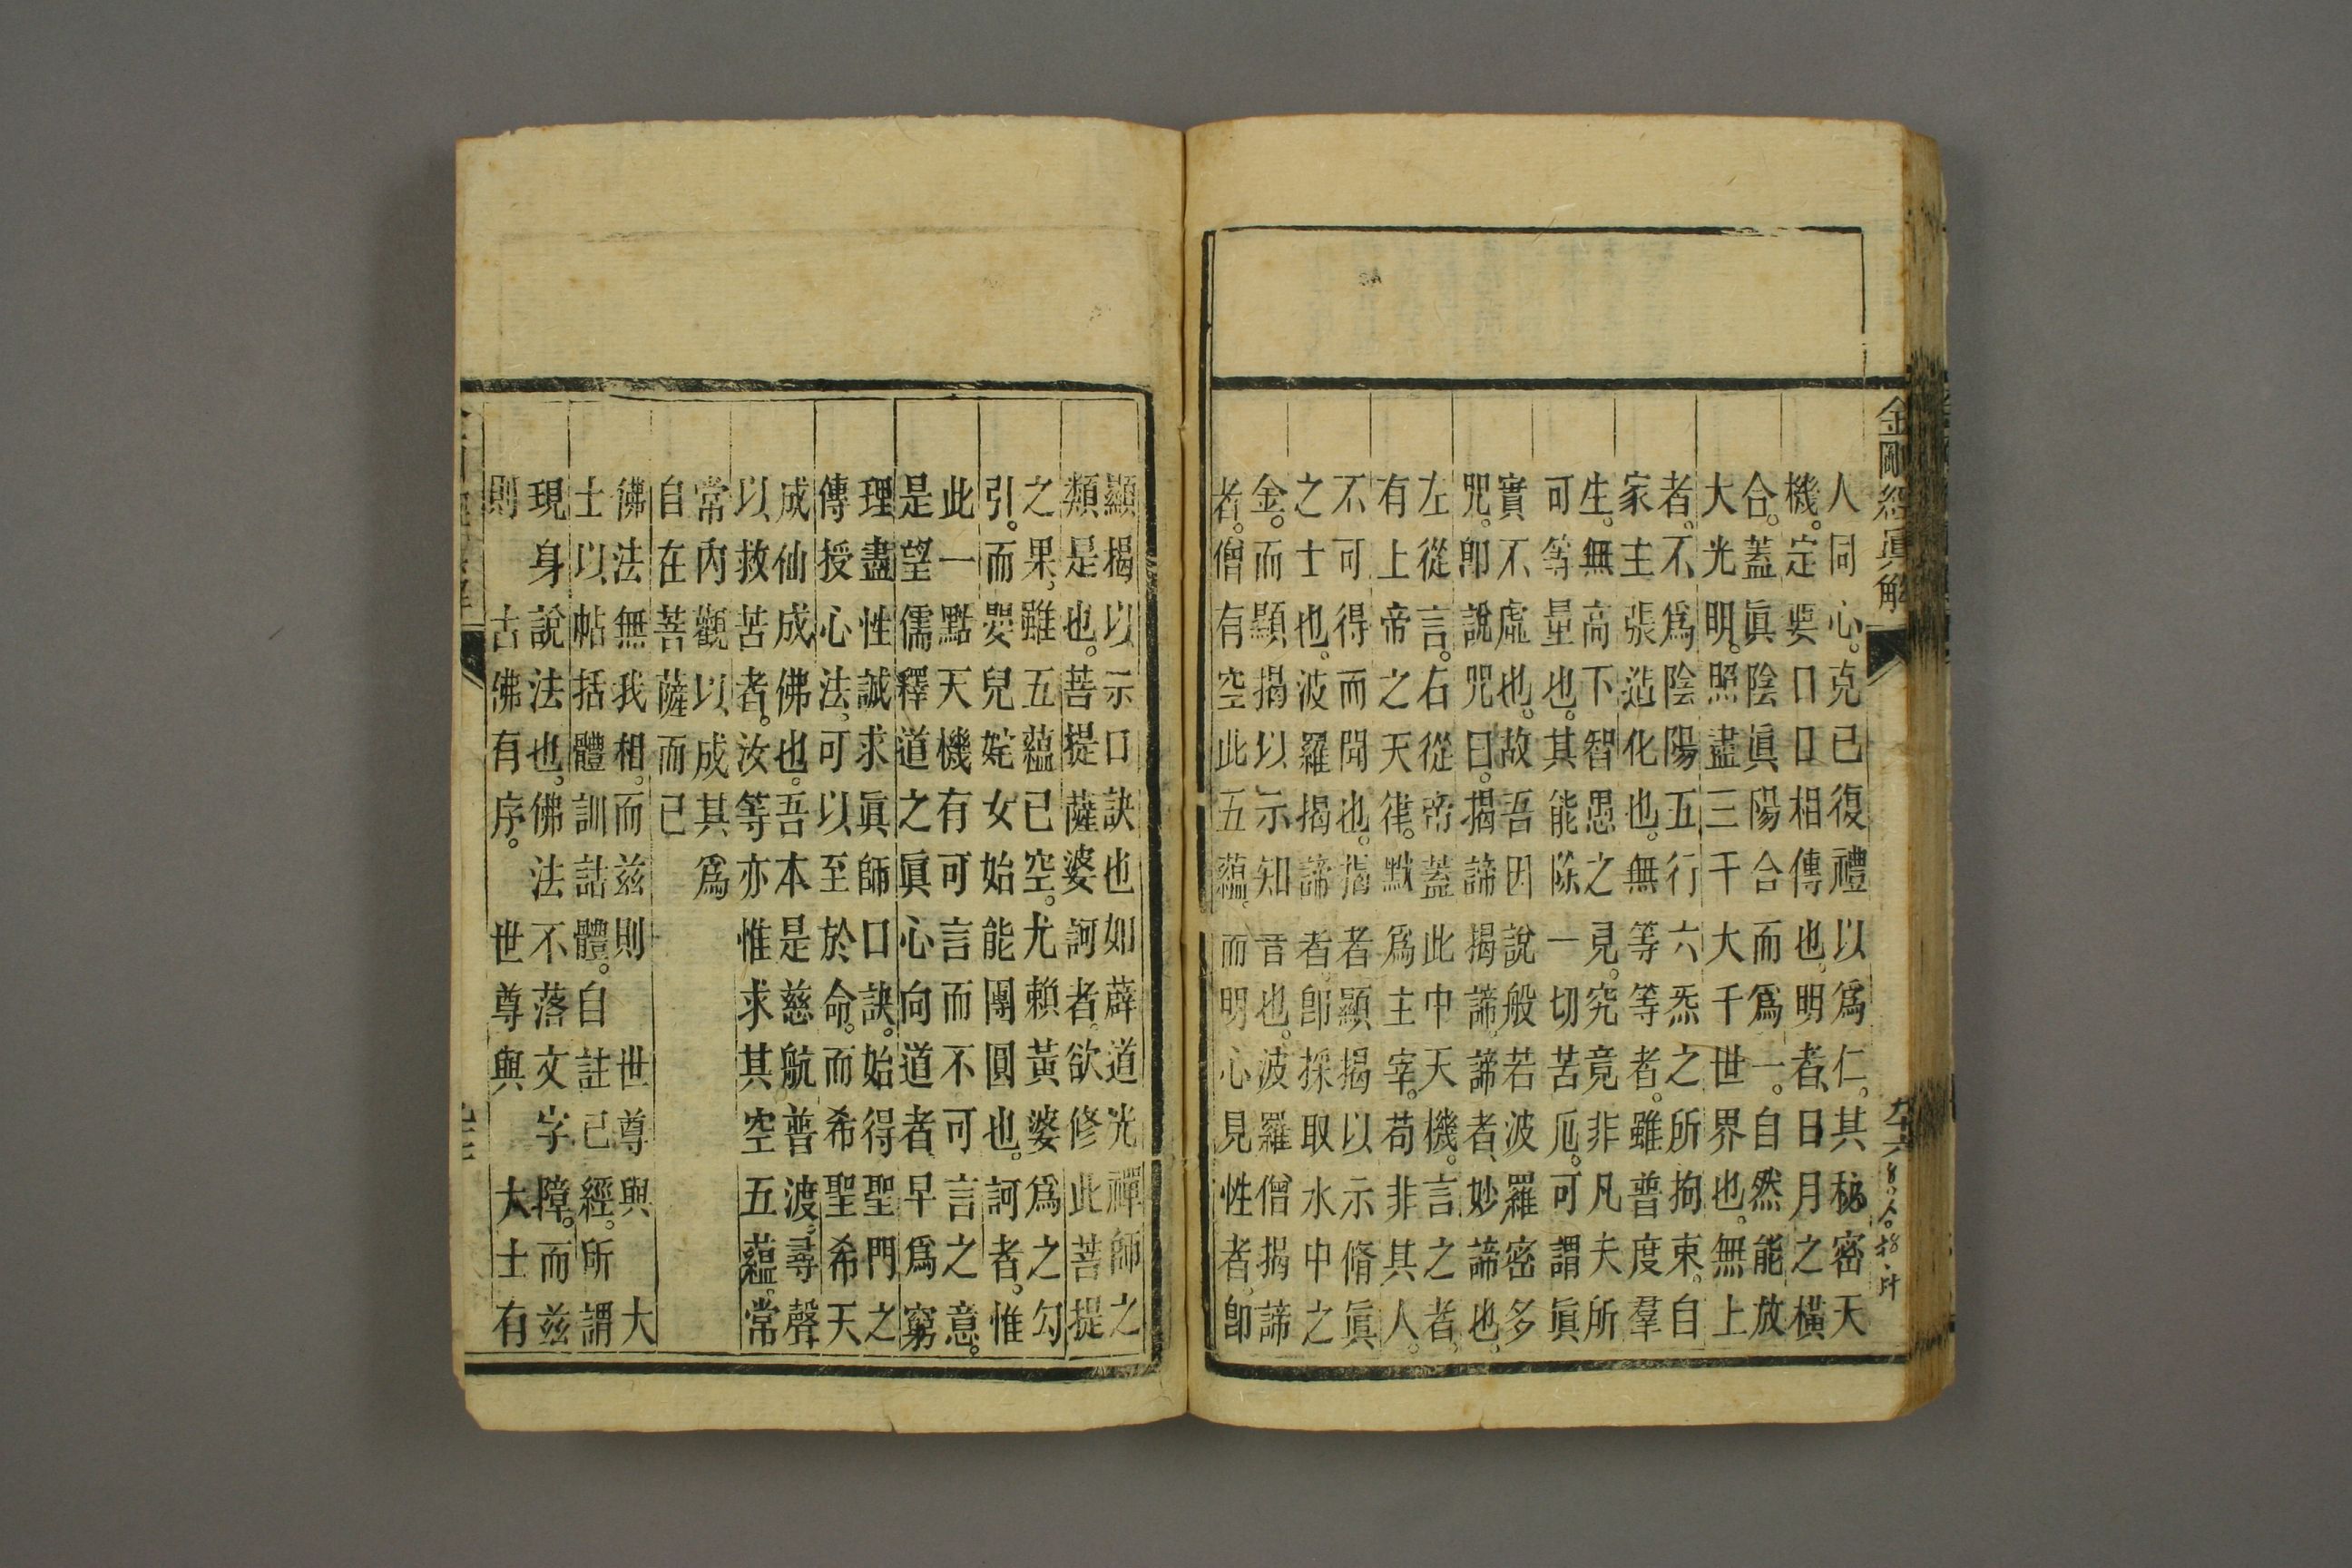 金剛經眞解
人同心。克已復禮以爲仁。其秘密天
機。定要口口相傳也。明者、日月之橫
合。蓋眞陰眞陽合而爲一。自然能放
大光明。照盡三千大千世界也。無上
者。不爲陰陽五行六炁之所拘束。自
家主張造化也。無等等者。雖普度羣
生。無高下智愚之見。究竟非凡夫所
可等量也。其能除一切苦厄。可謂眞
實不虛也。故吾因說般若波羅密多
咒。卽說咒曰。揭諦揭諦。諦者、妙諦也。
左從言。右從帝。蓋此中天機。言之者。
有上帝之天律。默爲主宰。苟非其人。
不可得而聞也。揭者顯揭以示脩眞
之士也。波羅揭諦者。卽採取水中之
金。而顯揭以示知音也。波羅僧揭諦
者。僧有空此五蘊。而明心見性者。卽
顯揭以示口訣也如薜道光禪師之
類是也。菩提薩婆訶者。欲修此菩提
之果，雖五蘊已空。尤賴黃婆爲之勾
引。而嬰兒姹女始能團圓也。訶者。惟
此一點天機有可言而不可言之意。
是望儒釋道之眞心向道者早爲窮
理盡性誠求眞師口訣。始得聖門之
傳授心法，可以至於命。而希聖希天
成仙成佛也。吾本是慈航普渡，尋聲
以救苦者。汝等亦惟求其空五蘊。常
常內觀以成其爲
自在菩薩而已
佛法無我相。而兹則 世尊與 大
士以帖括體訓詁體。自註己經。所謂
現身說法也。佛法不落文字障。而兹
則 古佛有序。 世尊與 大士有